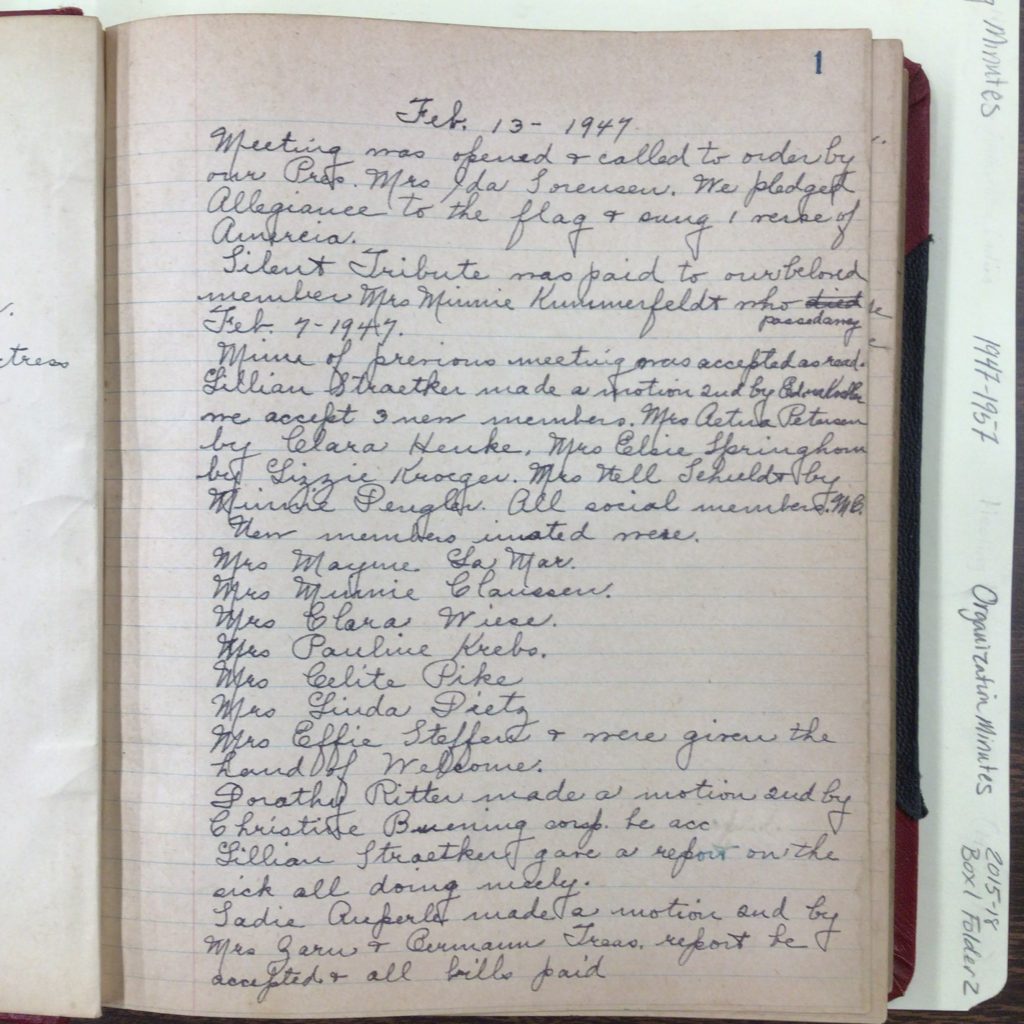 1
Feb. 13 - 1947
Meeting was opened & called to order by
our Pres. Mrs Ida Sorensen. We pledged
Allegiance to the flag & sung 1 verse of
Amercia.
Silent Tribute was paid to our beloved
member Mrs Minnie Kummerfeldt who died
passed away
Feb. 7-1947.
of previous meeting was accepted as read.
Lillian Straetker made a motion 2nd by
we accept 3 new members. Mrs Aetna Petersen
by Clara Henke. Mrs Elsie Springhorn
by Lizzie Kroeger. Mrs Nell Schuldt by
Minnie Pengler. All social members.
New members were.
Mrs Mayme La Mar.
Mrs Minnie Claussen.
Mrs Clara Wiese.
Mrs Pauline Krebs.
Mrs Celite Pike
Mrs Linda Dietz
Mrs Effie Steffens & were given the
hand of Welcome.
Dorathy Ritter made a motion 2nd by
Christine Buening corsp. be acc
Lillian Straetker gave a report on the
sick all doing nicely.
Sadie made a motion 2nd by
Mrs Zarn & Bermann Treas. report be
accepted & all bills paid
ctress
g Minutes
1947-1957
Organization Minutes
2015-18
Box 1 Folder 2